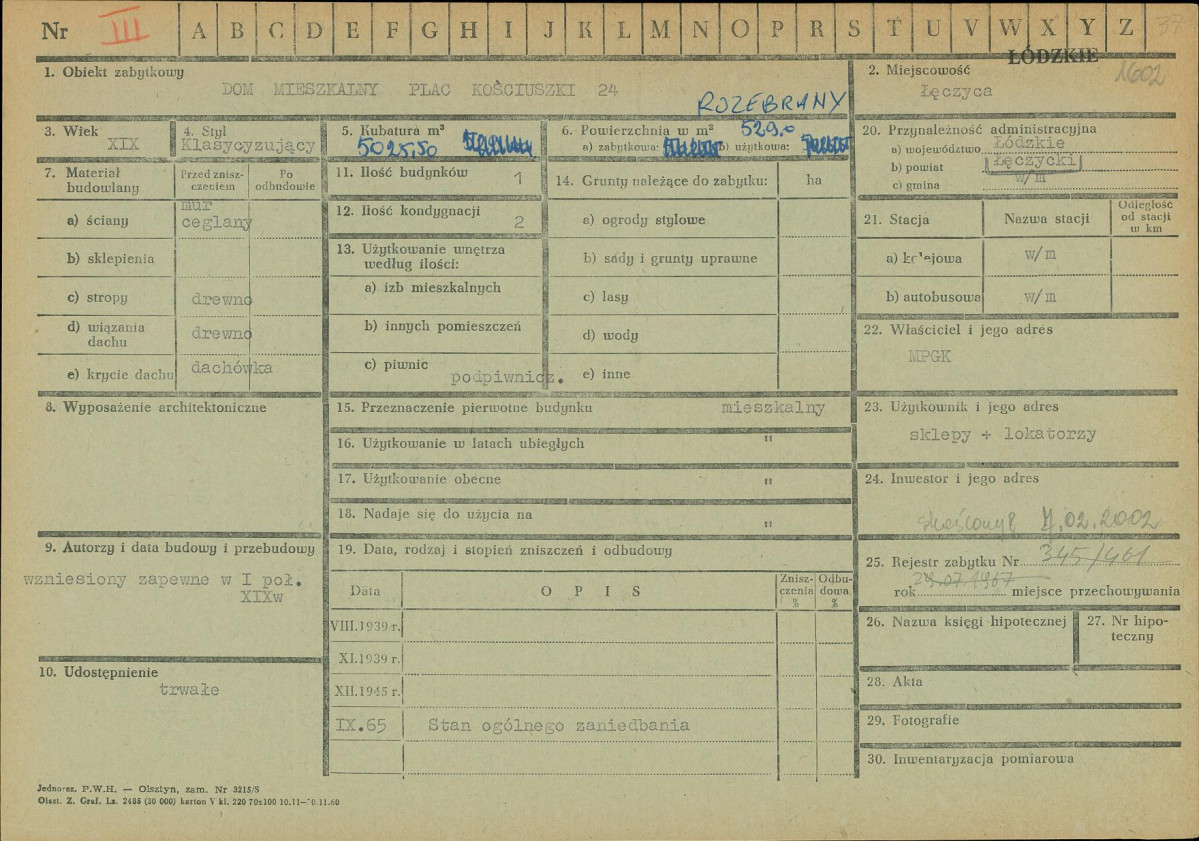 Nr III A B C D E F G H I J K L M N O P R S T U V W X Y Z 37
ŁÓDZKIE
1602
1. Obiekt zabytkowy
DOM MIESZKALNY PLAC KOŚCIUSZKI 24
ROZEBRANY
2. Miejscowość
Łęczyca
3. Wiek
XIX
4. Styl
Klasycyzujący
5. Kubatura m³
5025,50
6. Powierzchnia w m² 529,0
a) zabytkowa: b) użytkowa:
20. Przynależność administracyjna
a) województwo Łódzkie
b) powiat Łęczycki
c) gmina w/m
7. Materiał budowlany
Przed znisz-
czeniem
Po
odbudowie
a) ściany
mur
ceglany
b) sklepienia
c) stropy drewno
d) wiązania
dachu
drewno
e) krycie dachu dachówka
11. Ilość budynków 1
12. Ilość kondygnacji 2
13. Użytkowanie wnętrza
według ilości:
a) izb mieszkalnych
b) innych pomieszczeń
c) piwnic
podpiwnicz.
14. Grunty należące do zabytku: ha
a) ogrody stylowe
b) sady i grunty uprawne
c) lasy
d) wody
e) inne
21. Stacja
Nazwa stacji
Odległość
od stacji
w km
a) kolejowa w/m
b) autobusowa w/m
22. Właściciel i jego adres
MPGK
8. Wyposażenie architektoniczne
15. Przeznaczenie pierwotne budynku mieszkalny
16. Użytkowanie w latach ubiegłych "
17. Użytkowanie obecne "
18. Nadaje się do użycia na "
23. Użytkownik i jego adres
sklepy + lokatorzy
24. Inwestor i jego adres
02.2002
9. Autorzy i data budowy i przebudowy
wzniesiony zapewne w I poł.
XIXw
10. Udostępnienie
trwałe
19. Data, rodzaj i stopień zniszczeń i odbudowy
Data
O P I S
Znisz-
czenia
%
Odbu-
dowa
%
VIII.1939 r.
XI.1939 r.
XII.1945 r.
IX.65 Stan ogólnego zaniedbania
25. Rejestr zabytku Nr 345/461
rok 24.07.1967 miejsce przechowywania
26. Nazwa księgi hipotecznej
27. Nr hipo-
teczny
28. Akta
29. Fotografie
30. Inwentaryzacja pomiarowa
Jednoraz. P.W.H. — Olsztyn, zam. Nr 3215/S
Olszt. Z. Graf. Lz. 2485 (30 000) karton V kl. 220 70x100 10.11—